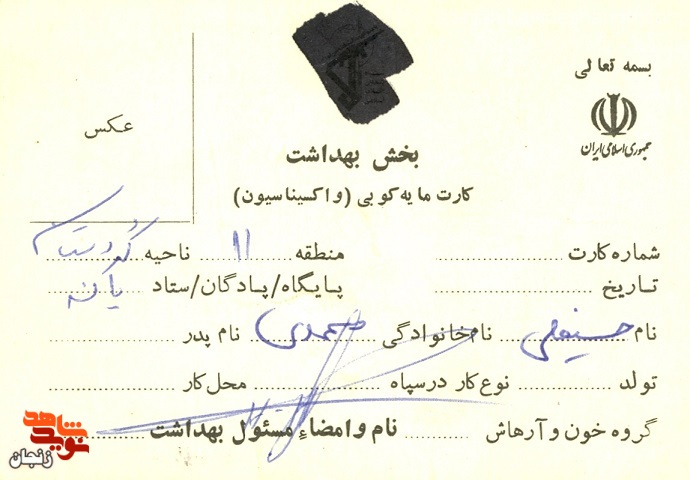 بسمه تعالی
جمهوری اسلامی ایران
عکس
بخش بهداشت
کارت مایه کوبی (واکسیناسیون)
شماره کارت ........ منطقه ۱۱ ناحیه کردستان
تاریخ ........ پایگاه/پادگان/ستاد
نام حسینعلی نام خانوادگی محمدی نام پدر ........
تولد ........ نوع کار در سپاه ........ محل کار ........
گروه خون و آرهاش ........ نام و امضاء مسئول بهداشت ........
نوید شاهد
زنجان